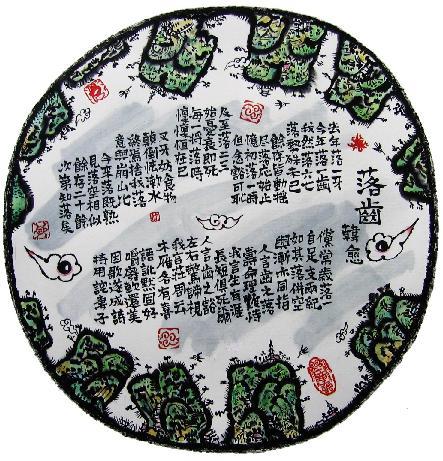 落齒
韓愈
去年落一牙
今年落一齒
俄然落六七
落勢殊未已
餘存皆動搖
盡落應始止
憶初落一時
但念豁可恥
及至落二三
始憂衰即死
每一將落時
懍懍恆在己
叉牙妨食物
顛倒怯漱水
終焉捨我落
意與崩山比
今來落既熟
見落空相似
餘存二十餘
次第知落矣
儻常歲落一
自足支兩紀
如其落併空
與漸亦同指
人言齒之落
壽命理難恃
我言生有涯
長短俱死爾
人言齒之豁
左右驚諦視
我言莊周云
木雁各有喜
語訛默固好
嚼廢軟還美
因歌遂成詩
持用詫妻子